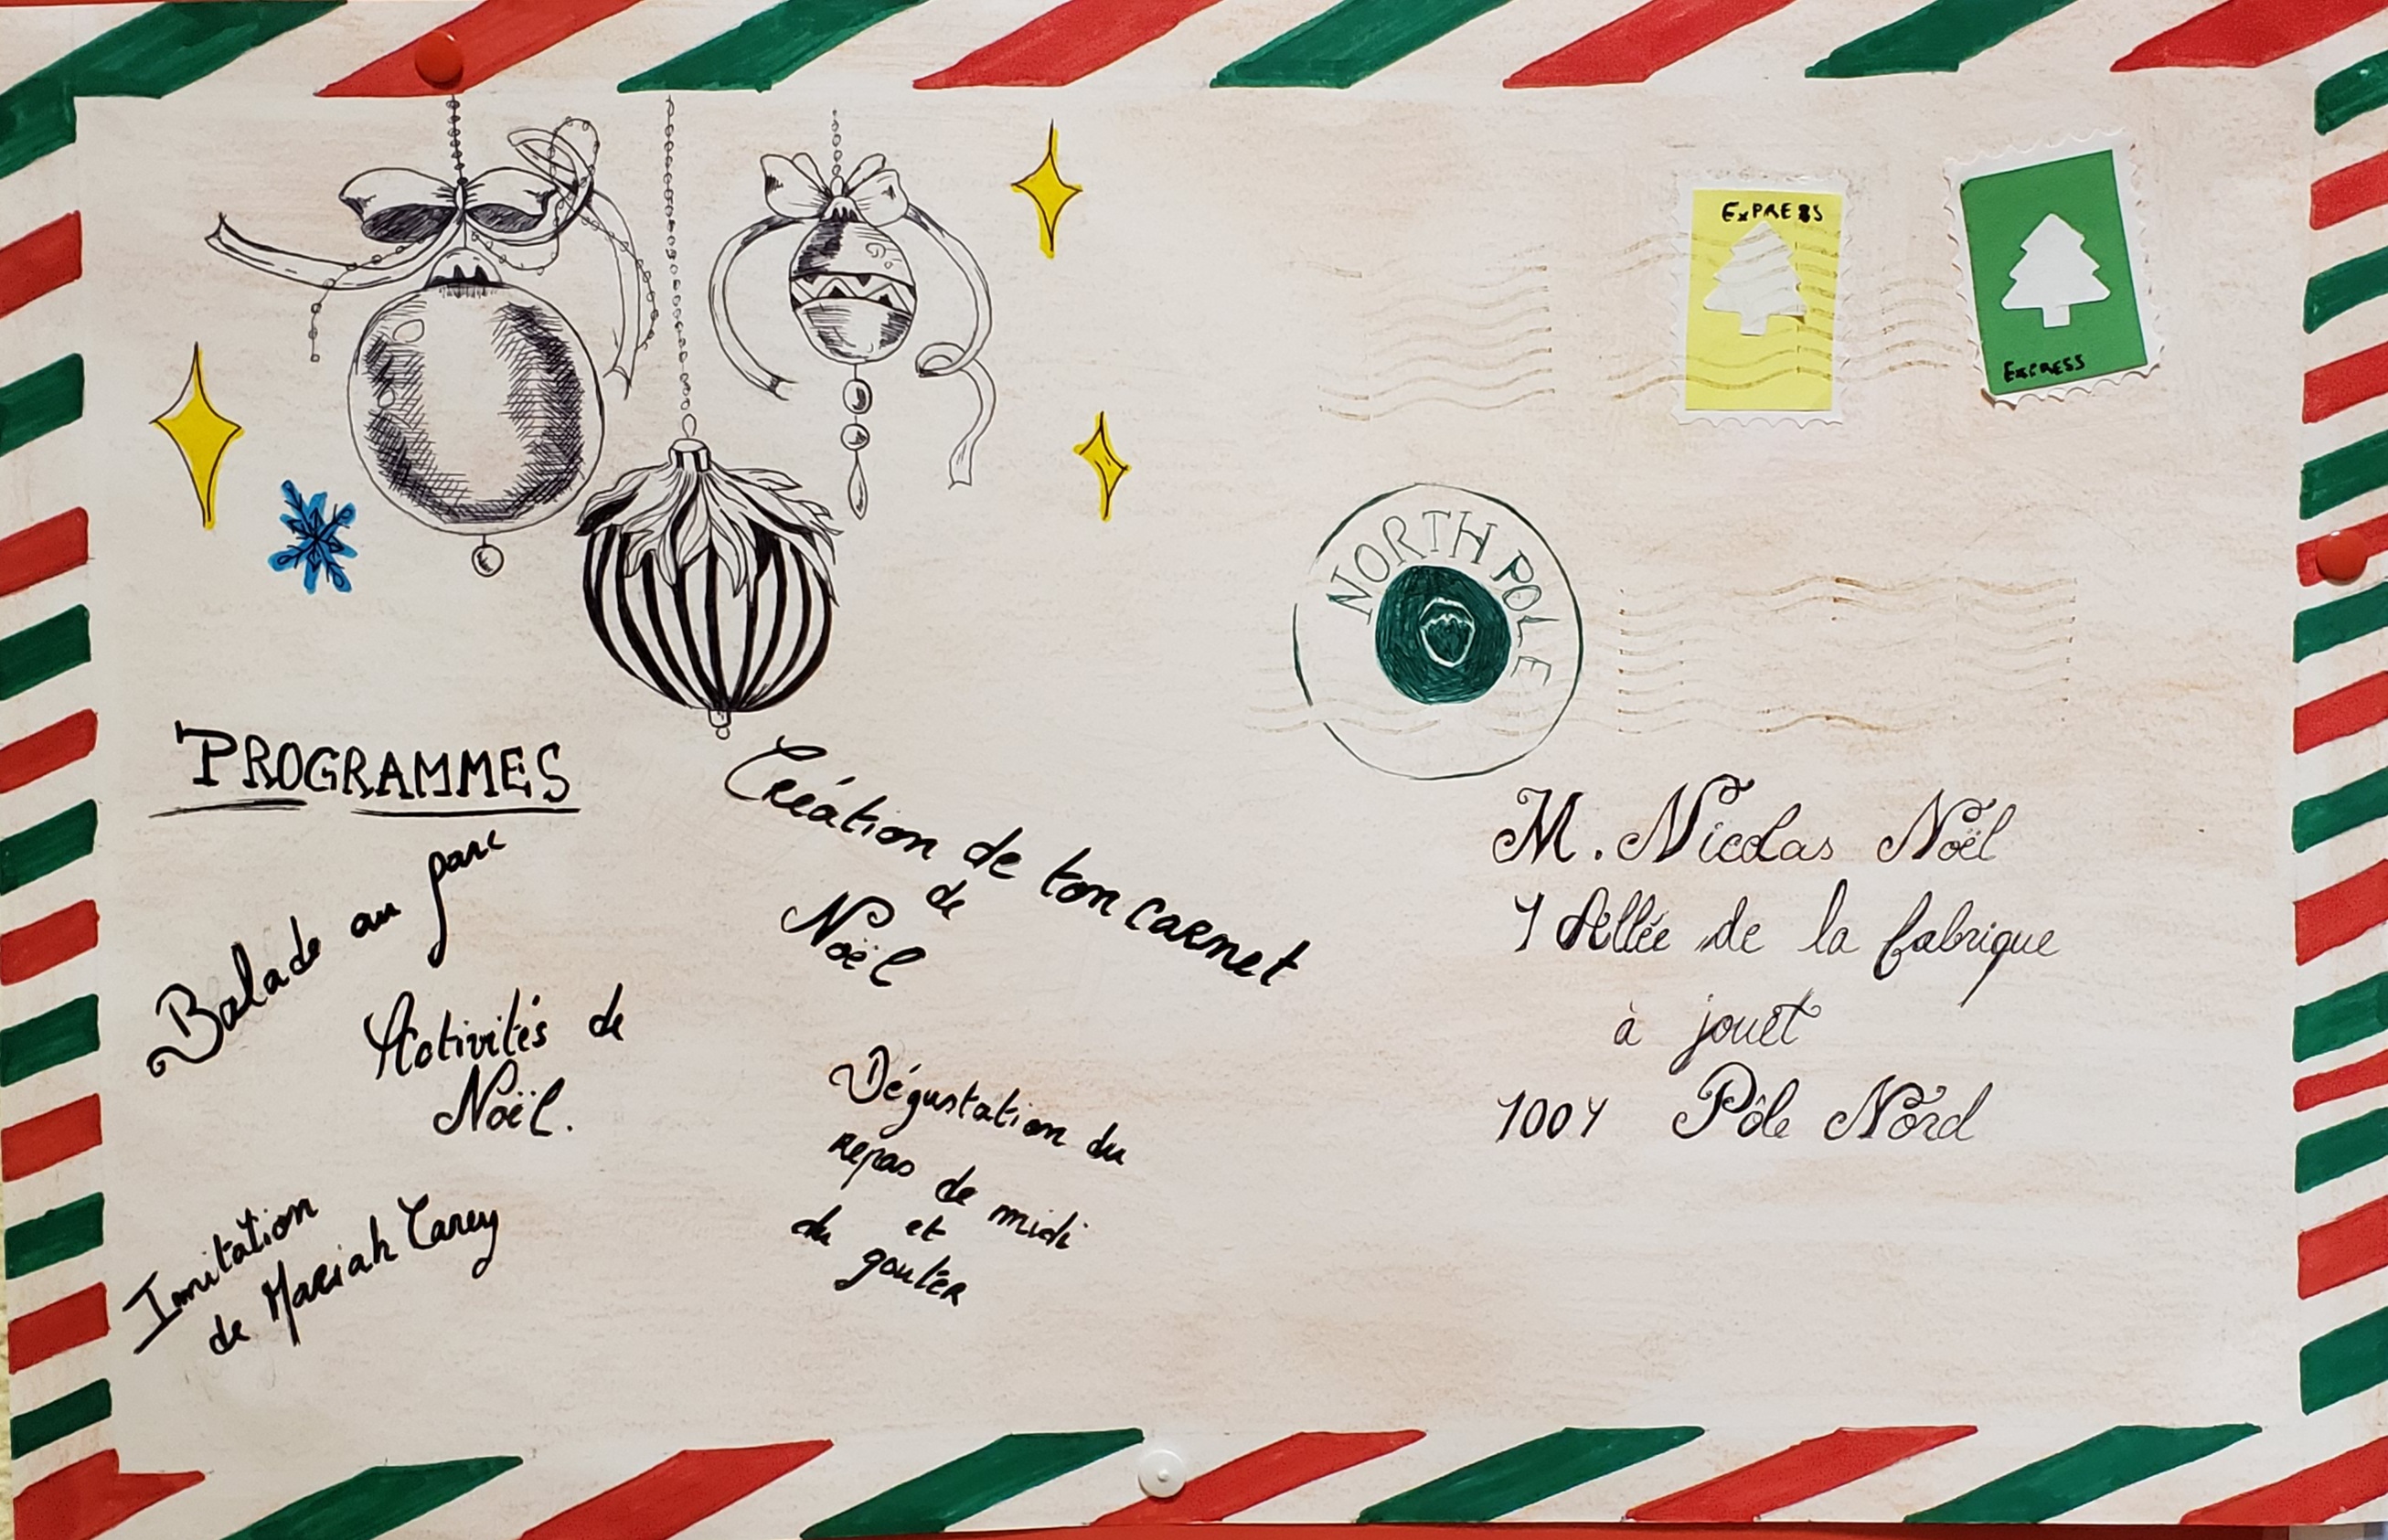 ExPRESS
ExPRESS
NORTH POLE
PROGRAMMES
Balade au parc
Activités de
Noël.
Imitation
de Mariah Carey
Création de ton carnet
de
Noël
Dégustation du
repas de midi
et
du goûter
M. Nicolas Noël
1 Allée de la fabrique
à jouet
1001 Pôle Nord